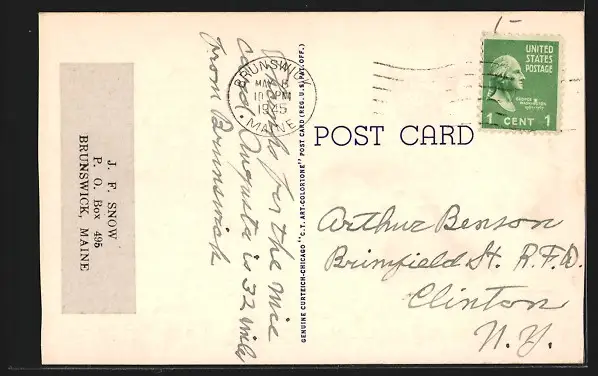 Thanks for the nice
card Augusta is 32 miles
from Brunswick
J. F. SNOW
P. O. Box 495
BRUNSWICK, MAINE
BRUNSWICK
MAY
10 PM
1945
MAINE
GENUINE CURTEICH-CHICAGO "C.T. ART-COLORTONE" POST CARD (REG. U.S. PAT. OFF.)
POST CARD
UNITED
STATES
POSTAGE
GEORGE
WASHINGTON
1 CENT 1
Arthur Benson
Brimfield St. R.F.D.
Clinton
N.Y.